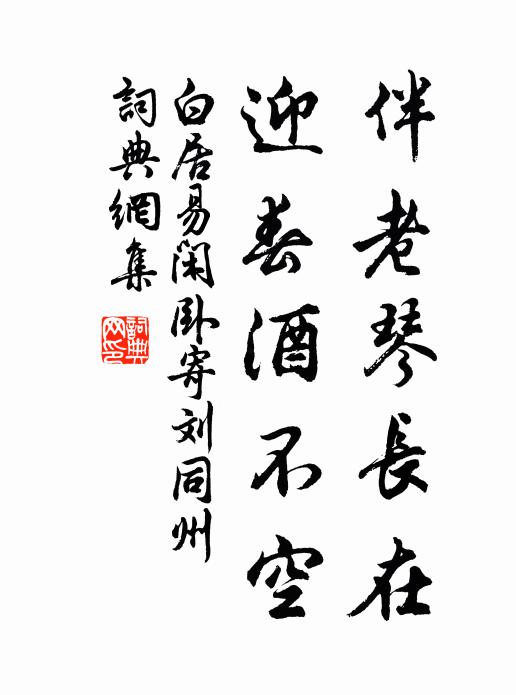 伴老琴長在
迎春酒不空
白居易闲卧寄刘同州
詞典網集
詞典网印